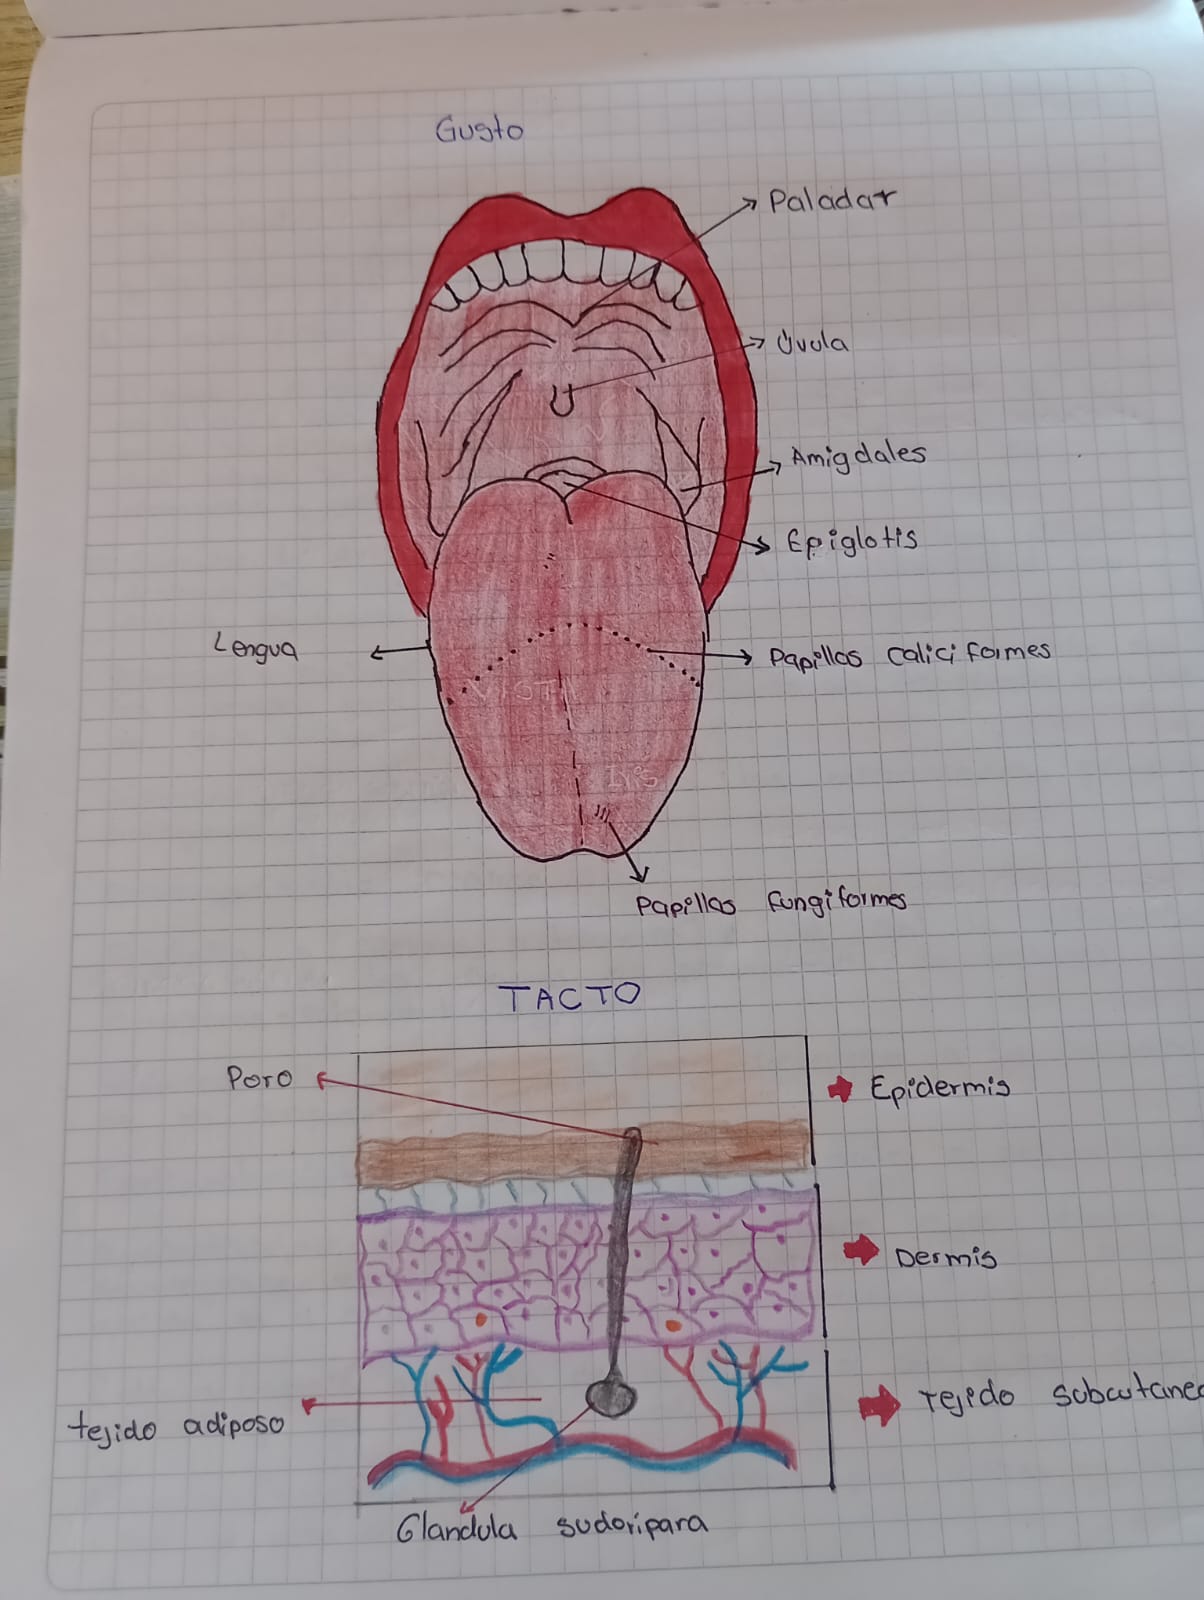 Gusto
Paladar
Úvula
Amigdales
Epiglotis
Lengua
Papillas caliciformes
Papillas fungiformes
TACTO
Poro
Epidermis
Dermis
tejido adiposo
Tejido subcutaneo
Glandula sudorípara